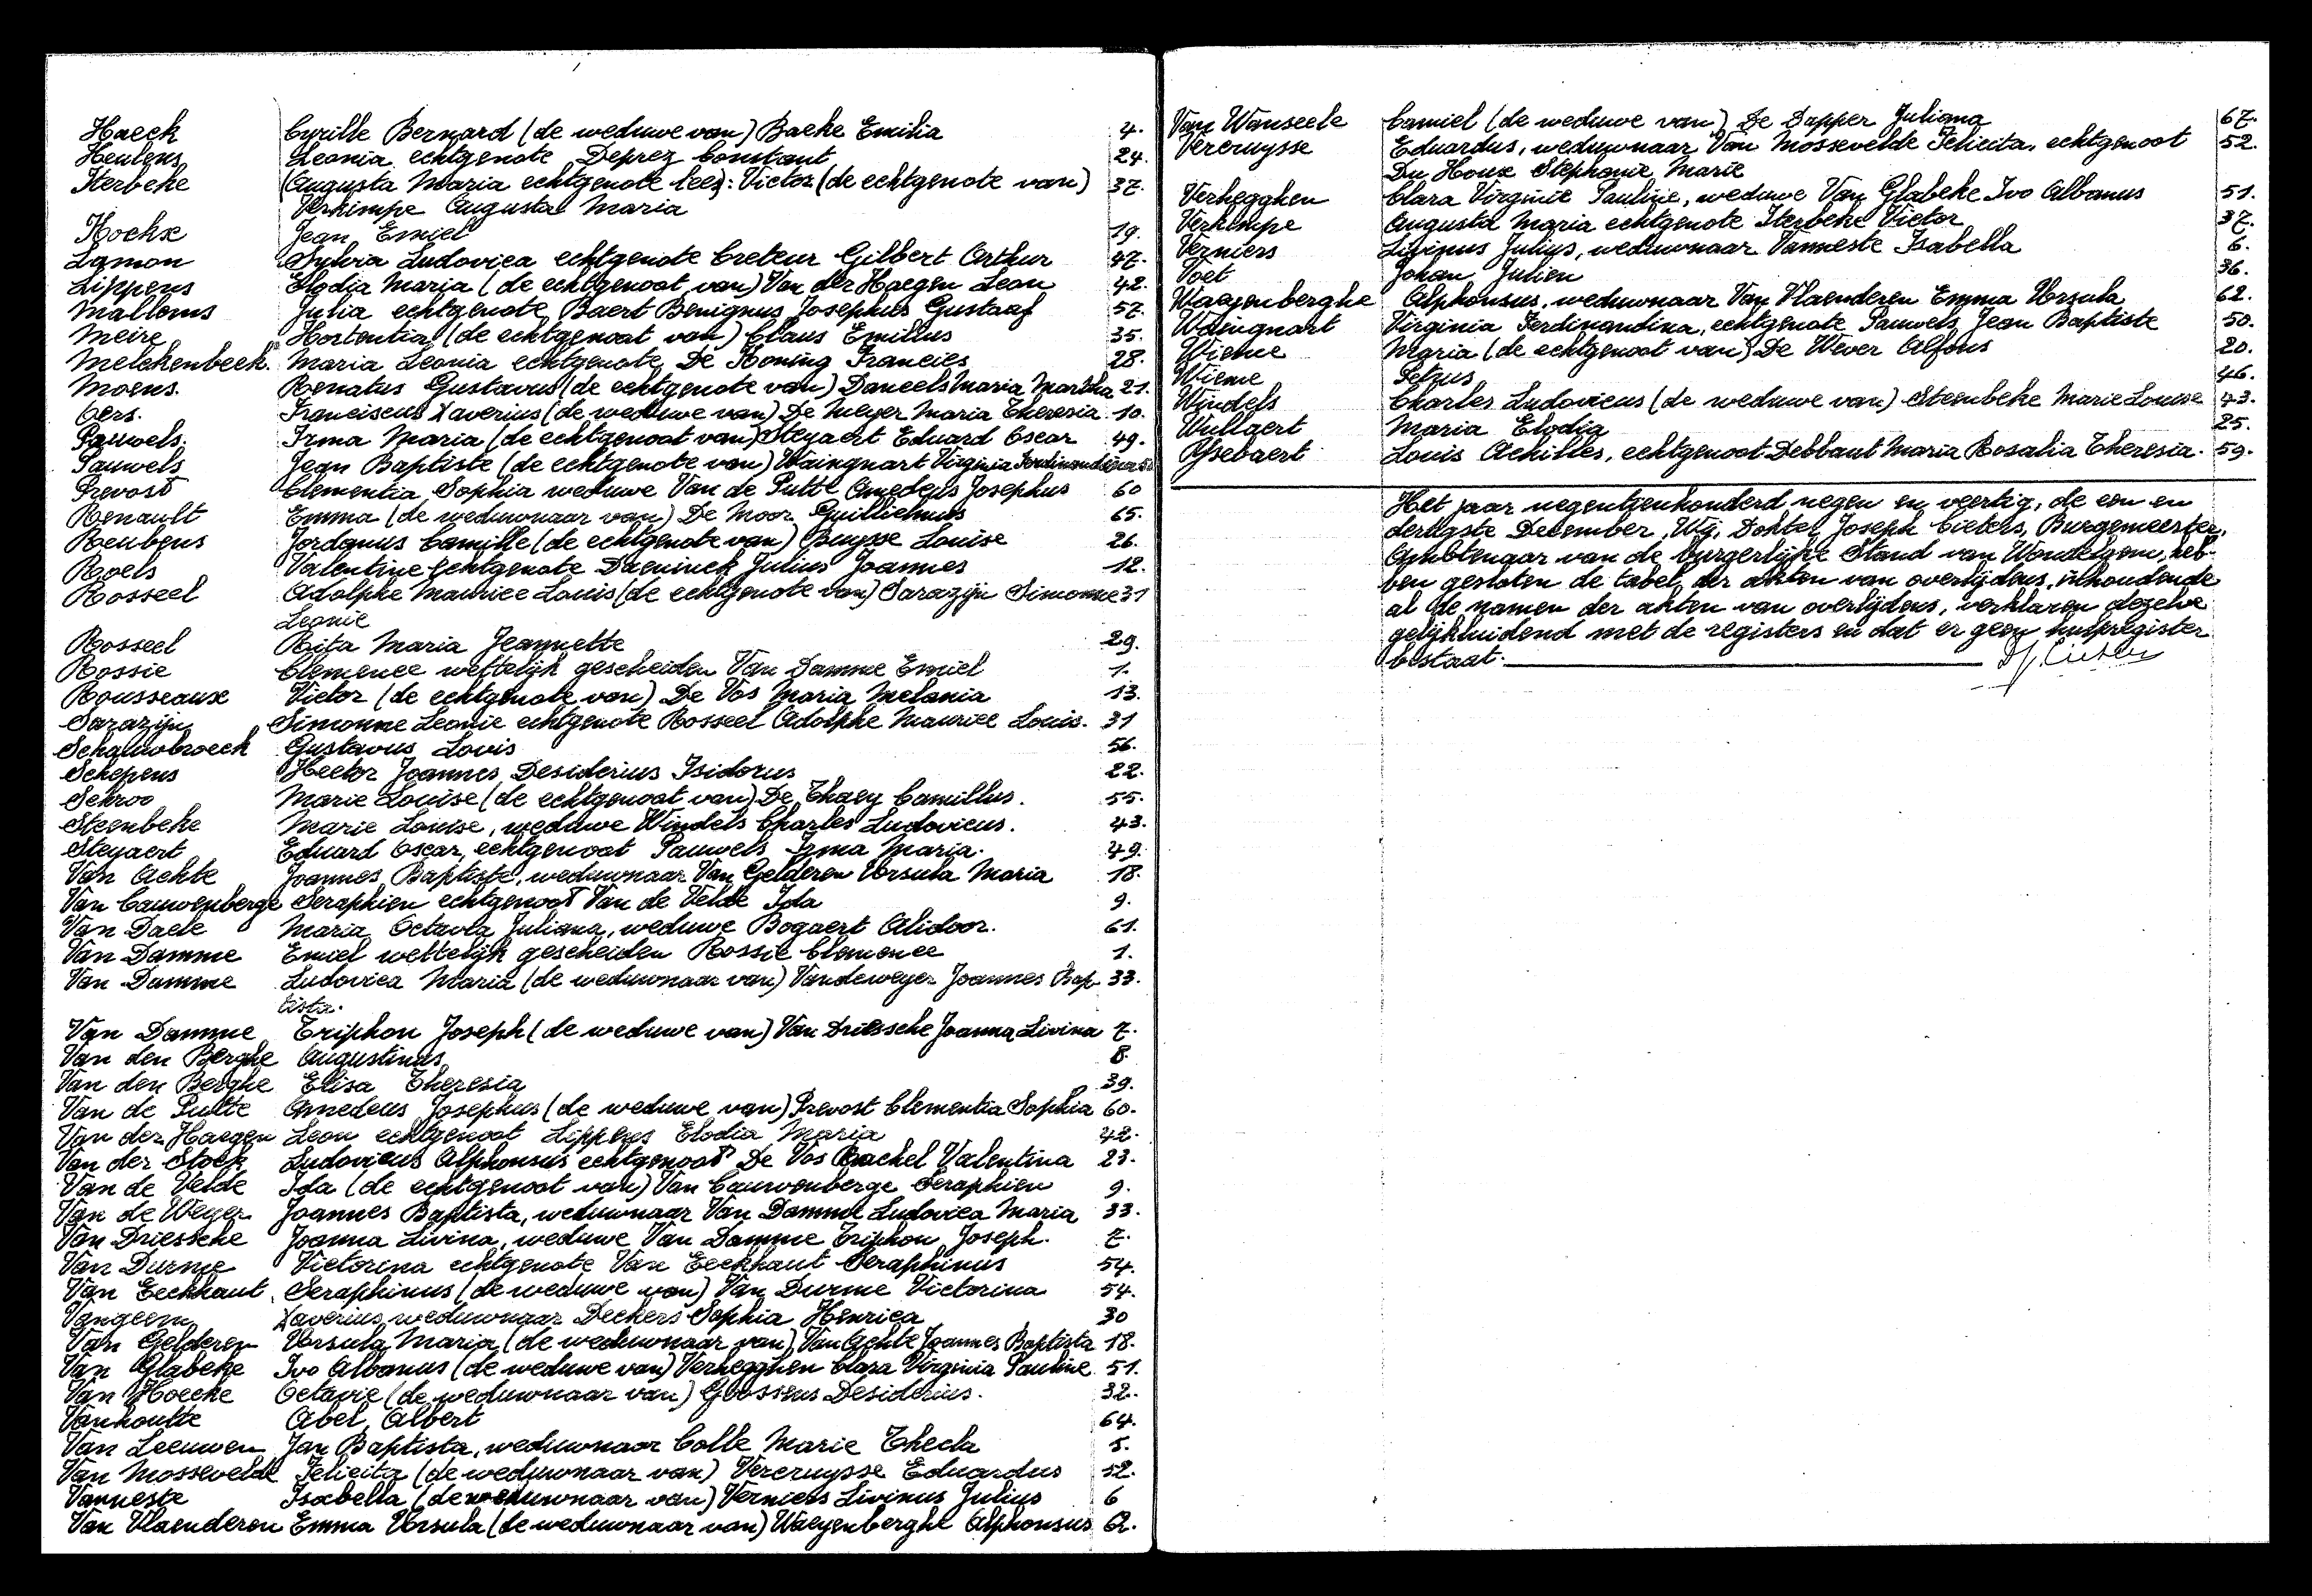 Haeck Cyrille Bernard (de weduwe van) Baeke Emilia 4.
Heulens Leonia echtgenote Deprez Constant 24.
Iterbeke (Augusta Maria echtgenote lees): Victor (de echtgenote van) 37.
Verkimpe Augusta Maria
Hoekx Jean Emiel 19.
Lamon Sylvia Ludovica echtgenote Creteur Gilbert Arthur 47.
Lippens Elodia Maria (de echtgenoot van) Van der Haegen Leon 42.
Mallems Julia echtgenote Baert Benignus Josephus Gustaaf 57.
Meire Hortentia (de echtgenoot van) Claus Emillus 35.
Melckenbeek. Maria Leonia echtgenote De Koning Francies 28.
Moens. Renatus Gustavus (de echtgenote van) Daneels Maria Martha 21.
Oers. Franciscus Xaverius (de weduwe van) De Meyer Maria Theresia 10.
Pauwels. Irma Maria (de echtgenoot van) Steyaert Eduard Oscar 49.
Pauwels Jean Baptiste (de echtgenote van) Waingnart Virginia Ferdinandina 50
Prevost Clementia Sophia weduwe Van de Putte Amedeus Josephus 60
Renault Emma (de weduwnaar van) De Moor Guillielmus 65.
Reubens Jordanus Camille (de echtgenote van) Buysse Louise 26.
Roels Valentine echtgenote Daeninck Julius Joannes 12.
Rosseel Adolphe Maurice Louis (de echtgenote van) Sarazijn Simonne 31
Leonie
Rosseel Rita Maria Jeannette 29.
Rossie Clemence wettelijk gescheiden Van Damme Emiel 1.
Rousseaux Victor (de echtgenote van) De Vos Maria Melania 13.
Sarazijn Simonne Leonie echtgenote Rosseel Adolphe Maurice Louis. 31
Schaluwbroeck Gustavus Lovis 56.
Schepens Hector Joannes Desiderius Isidorus 22.
Schroo Marie Louise (de echtgenoot van) De Thaey Camillus. 55.
Steenbeke Marie Louise, weduwe Windels Charles Ludovicus. 43.
Steyaert Eduard Oscar, echtgenoot Pauwels Irma Maria. 49.
Van Achte Joannes Baptiste, weduwnaar Van Gelderen Ursula Maria 18.
Van Cauwenberge Seraphien echtgenoot Van de Velde Ida 9.
Van Daele Maria Octavia Juliana, weduwe Bogaert Alidoor. 61.
Van Damme Emiel wettelijk gescheiden Rossie Clemence 1.
Van Damme Ludovica Maria (de weduwnaar van) Vandeweyer Joannes Bap- 33.
tista.
Van Damme Triphon Joseph (de weduwe van) Van Driessche Joanna Livina 7.
Van den Berghe Augustinus 8.
Van den Berghe Elisa Theresia 39.
Van de Putte Amedeus Josephus (de weduwe van) Prevost Clementia Sophia 60.
Van der Haegen Leon echtgenoot Lippens Elodia Maria 42.
Van der Stock Ludovicus Alphonsus echtgenoot De Vos Rachel Valentina 23.
Van de Velde Ida (de echtgenoot van) Van Cauwenberge Seraphien 9.
Van de Weyer Joannes Baptista, weduwnaar Van Damme Ludovica Maria 33.
Van Driessche Joanna Livina, weduwe Van Damme Triphon Joseph. 7.
Van Durme Victorina echtgenote Van Eeckhaut Seraphinus 54.
Van Eeckhaut Seraphinus (de weduwe van) Van Durme Victorina 54.
Vangeem Xaverius weduwnaar Deckers Sophia Henrica 30
Van Gelderen Ursula Maria (de weduwnaar van) Van Achte Joannes Baptista 18.
Van Glabeke Ivo Albanus (de weduwe van) Verhegghen Clara Virginia Pauline 51.
Van Hoecke Octavie (de weduwnaar van) Goossens Desiderius. 32.
Vanhoutte Abel Albert 64.
Van Leeuwen Jan Baptista, weduwnaar Colle Marie Thecla 5.
Van Mossevelde Felicita (de weduwnaar van) Vercruysse Eduardus 52.
Vanneste Isabella (de weduwnaar van) Verniers Livinus Julius 6
Van Vlaenderen Emma Ursula (de weduwnaar van) Waeyenberghe Alphonsus 62.
Van Wanseele Camiel (de weduwe van) De Dapper Juliana 67.
Vercruysse Eduardus, weduwnaar Van Mossevelde Felicita, echtgenoot 52.
Du Houx Stephanie Marie
Verhegghen Clara Virginie Pauline, weduwe Van Glabeke Ivo Albanus 51.
Verkimpe Augusta Maria echtgenote Iterbeke Victor 37.
Verniers Livinus Julius, weduwnaar Vanneste Isabella 6.
Voet Johan Julien 36.
Waeyenberghe Alphonsus, weduwnaar Van Vlaenderen Emma Ursula 62.
Waingnart Virginia Ferdinandina, echtgenote Pauwels Jean Baptiste 50.
Wieme Maria (de echtgenoot van) De Wever Alfons 20.
Wieme Petrus 46.
Windels Charles Ludovicus (de weduwe van) Steenbeke Marie Louise 43.
Wullaert Maria Elodia 25.
Ysebaert Louis Achilles, echtgenoot Debbaut Maria Rosalia Theresia. 59.
Het jaar negentienhonderd negen en veertig, de een en
dertigste December, Wij, Dokter Joseph Cieters, Burgemeester,
Ambtenaar van de burgerlijke Stand van Wondelgem, heb-
ben gesloten de tabel der akten van overlijdens, inhoudende
al de namen der akten van overlijdens, verklaren dezelve
gelijkluidend met de registers en dat er geen hulpregister
bestaat.